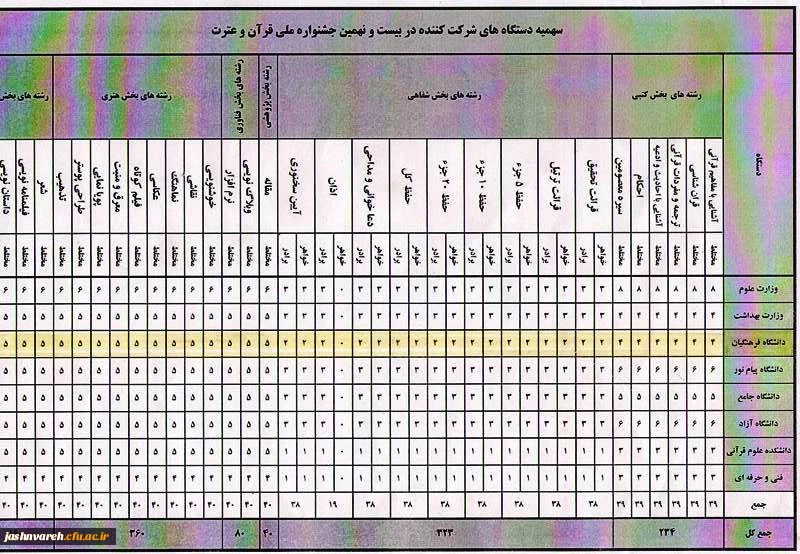 سهمیه دستگاه های شرکت کننده در بیست و نهمین جشنواره ملی قرآن و عترت
دستگاه رشته های بخش کتبی رشته های بخش شفاهی رشته های بخش پژوهشی رشته های بخش فناوری رشته های بخش هنری رشته های بخش
آشنایی با مفاهیم قرآنی قرآن شناسی ترجمه و مفردات قرآنی آشنایی با احادیث و ادعیه احکام سیره معصومین قرائت تحقیق قرائت ترتیل حفظ ۵ جزء حفظ ۱۰ جزء حفظ ۲۰ جزء حفظ کل دعا خوانی و مداحی اذان آیین سخنوری مقاله وبلاگ نویسی نرم افزار خوشنویسی نقاشی نماهنگ عکاسی فیلم کوتاه معرق و منبت پویا نمایی طراحی پوستر تذهیب شعر فیلمنامه نویسی داستان نویسی
مختلط مختلط مختلط مختلط مختلط مختلط خواهر برادر خواهر برادر خواهر برادر خواهر برادر خواهر برادر خواهر برادر خواهر برادر خواهر برادر خواهر برادر مختلط مختلط مختلط مختلط مختلط مختلط مختلط مختلط مختلط مختلط مختلط مختلط مختلط مختلط مختلط
وزارت علوم ۸ ۸ ۸ ۸ ۸ ۸ ۳ ۳ ۳ ۳ ۳ ۳ ۳ ۳ ۳ ۳ ۳ ۳ ۳ ۳ ۰ ۳ ۳ ۳ ۶ ۶ ۶ ۶ ۶ ۶ ۶ ۶ ۶ ۶ ۶ ۶ ۶ ۶ ۶
وزارت بهداشت ۴ ۴ ۴ ۴ ۴ ۴ ۳ ۳ ۳ ۳ ۳ ۳ ۳ ۳ ۳ ۳ ۳ ۳ ۳ ۳ ۰ ۳ ۳ ۳ ۵ ۵ ۵ ۵ ۵ ۵ ۵ ۵ ۵ ۵ ۵ ۵ ۵ ۵ ۵
دانشگاه فرهنگیان ۴ ۴ ۴ ۴ ۴ ۴ ۲ ۲ ۲ ۲ ۲ ۲ ۲ ۲ ۲ ۲ ۲ ۲ ۲ ۲ ۰ ۲ ۲ ۲ ۵ ۵ ۵ ۵ ۵ ۵ ۵ ۵ ۵ ۵ ۵ ۵ ۵ ۵ ۵
دانشگاه پیام نور ۶ ۶ ۶ ۶ ۶ ۶ ۳ ۳ ۳ ۳ ۳ ۳ ۳ ۳ ۳ ۳ ۳ ۳ ۳ ۳ ۰ ۳ ۳ ۳ ۵ ۵ ۵ ۵ ۵ ۵ ۵ ۵ ۵ ۵ ۵ ۵ ۵ ۵ ۵
دانشگاه جامع ۵ ۵ ۵ ۵ ۵ ۵ ۳ ۳ ۳ ۳ ۳ ۳ ۳ ۳ ۳ ۳ ۳ ۳ ۳ ۳ ۰ ۳ ۳ ۳ ۵ ۵ ۵ ۵ ۵ ۵ ۵ ۵ ۵ ۵ ۵ ۵ ۵ ۵ ۵
دانشگاه آزاد ۶ ۶ ۶ ۶ ۶ ۶ ۳ ۳ ۳ ۳ ۳ ۳ ۳ ۳ ۳ ۳ ۳ ۳ ۳ ۳ ۰ ۳ ۳ ۳ ۵ ۵ ۵ ۵ ۵ ۵ ۵ ۵ ۵ ۵ ۵ ۵ ۵ ۵ ۵
دانشکده علوم قرآنی ۳ ۳ ۳ ۳ ۳ ۳ ۱ ۱ ۱ ۱ ۱ ۱ ۱ ۱ ۱ ۱ ۱ ۱ ۱ ۱ ۰ ۱ ۱ ۱ ۵ ۵ ۵ ۵ ۵ ۵ ۵ ۵ ۵ ۵ ۵ ۵ ۵ ۵ ۵
فنی و حرفه ای ۳ ۳ ۳ ۳ ۳ ۳ ۱ ۱ ۱ ۱ ۱ ۱ ۱ ۱ ۱ ۱ ۱ ۱ ۱ ۱ ۰ ۱ ۱ ۱ ۴ ۴ ۴ ۴ ۴ ۴ ۴ ۴ ۴ ۴ ۴ ۴ ۴ ۴ ۴
جمع ۳۹ ۳۹ ۳۹ ۳۹ ۳۹ ۳۹ ۳۸ ۳۸ ۳۸ ۳۸ ۳۸ ۳۸ ۳۸ ۱۹ ۳۸ ۴۰ ۴۰ ۴۰ ۴۰ ۴۰ ۴۰ ۴۰ ۴۰ ۴۰ ۴۰ ۴۰ ۴۰ ۴۰ ۴۰ ۴۰
جمع کل ۲۳۴ ۳۲۳ ۴۰ ۸۰ ۳۶۰
jashnvareh.cfu.ac.ir